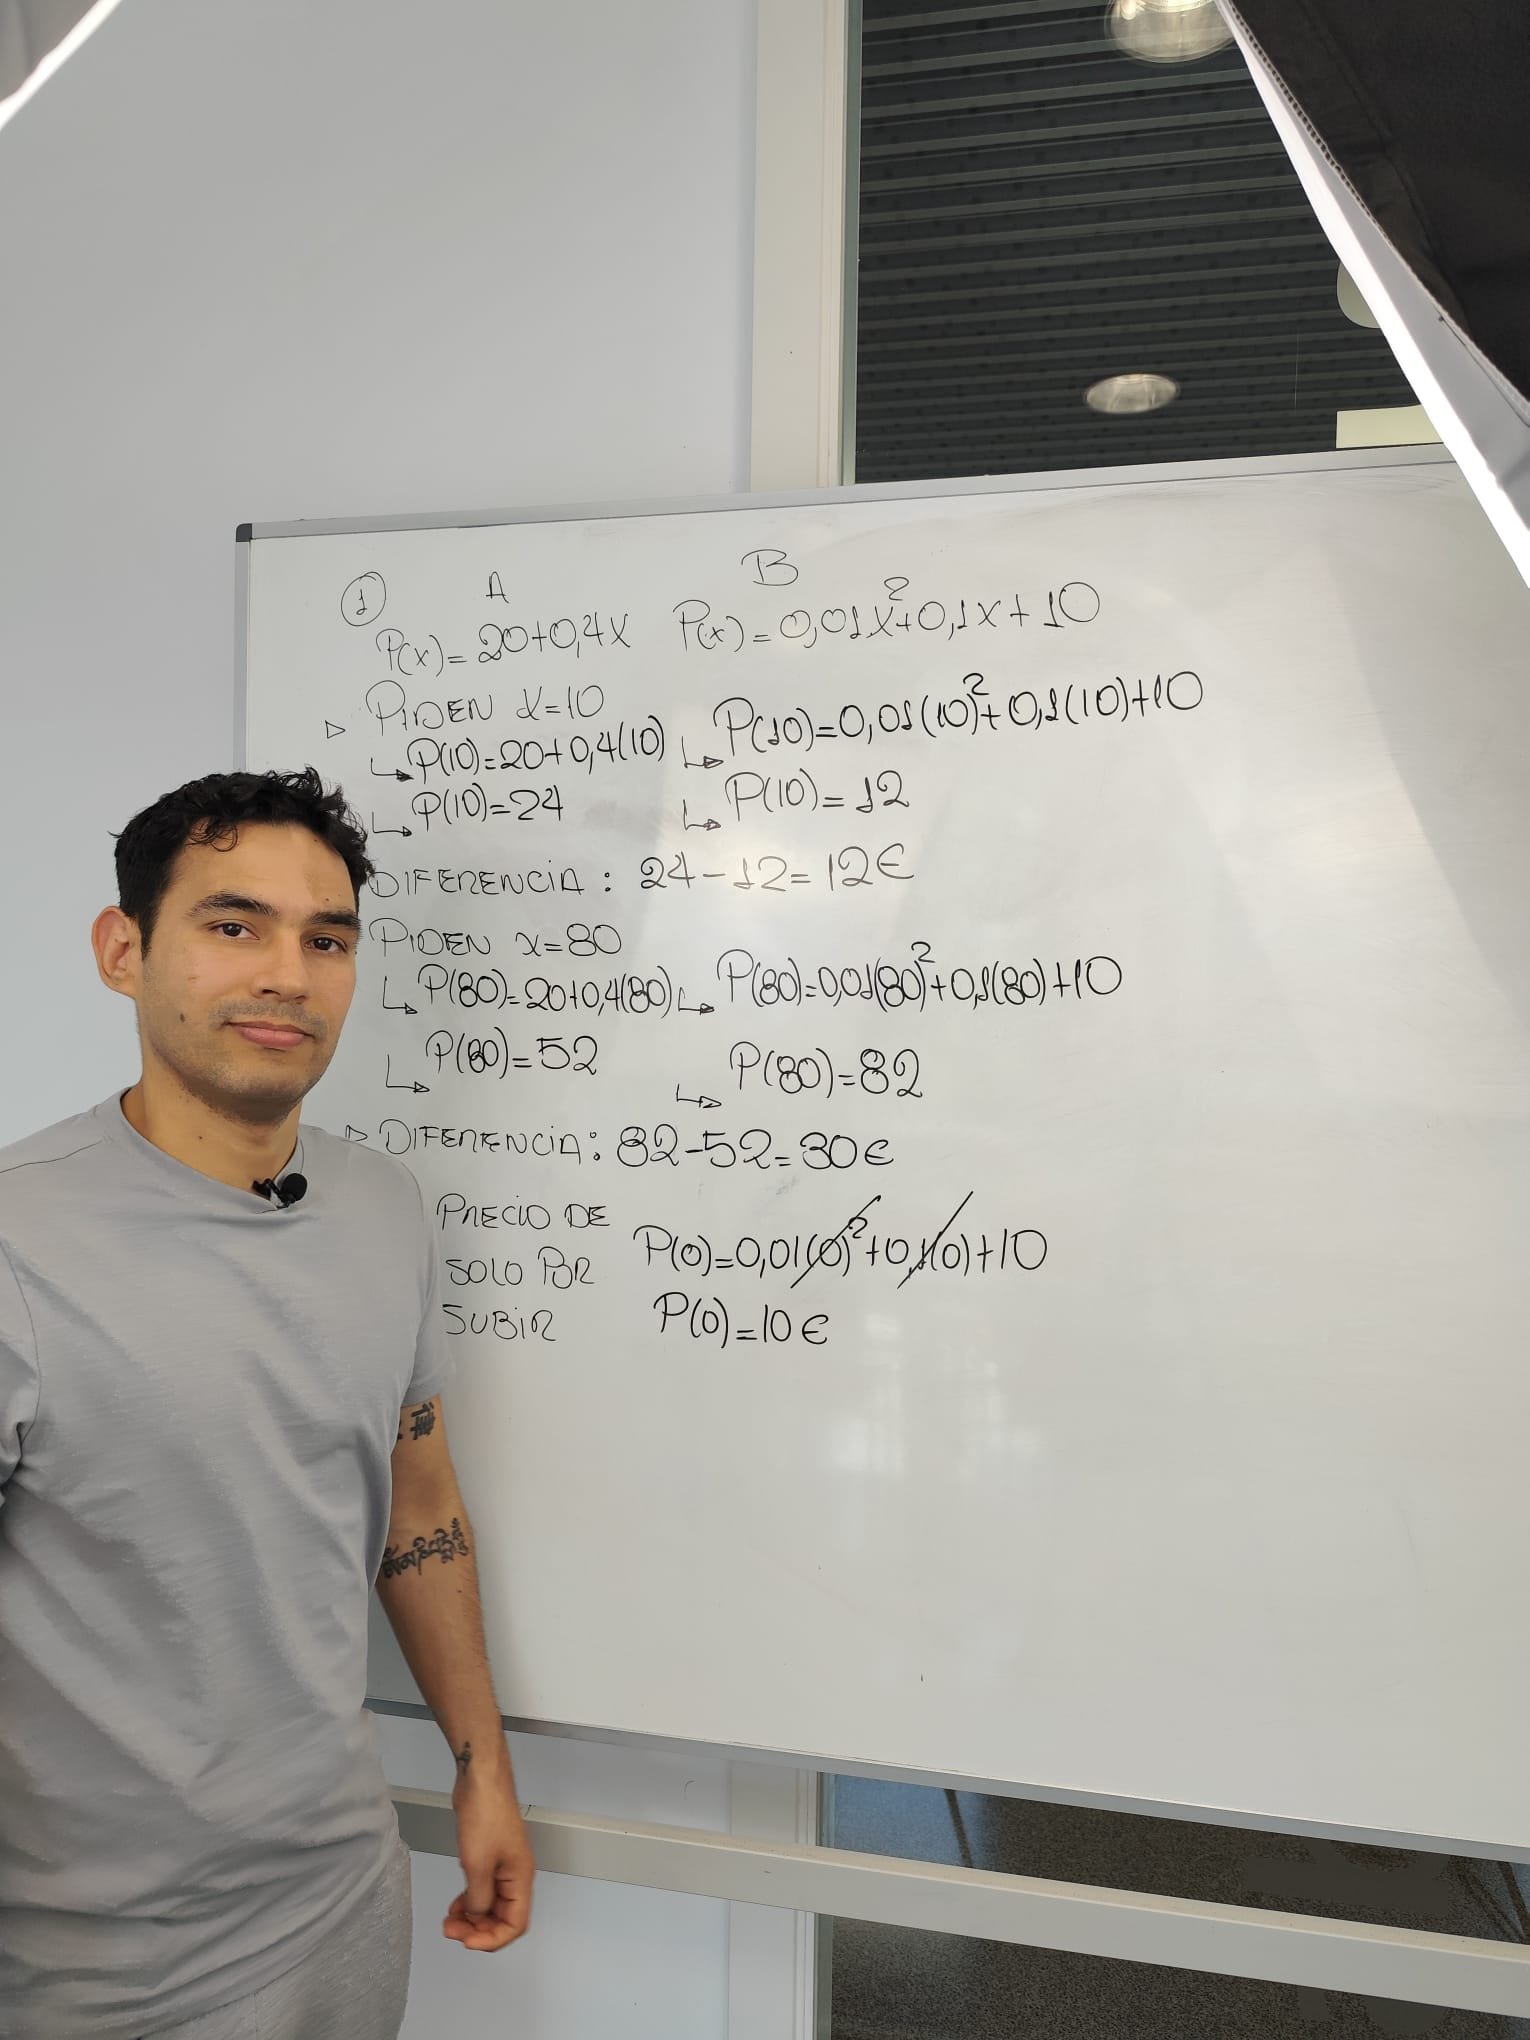 ① A B
P(x)=20+0,4x P(x)=0,01x²+0,1x+10
▷ PIDEN x=10
↳ P(10)=20+0,4(10) ↳ P(10)=0,01(10)²+0,1(10)+10
↳ P(10)=24 ↳ P(10)=12
DIFERENCIA: 24-12=12€
PIDEN x=80
↳ P(80)=20+0,4(80) ↳ P(80)=0,01(80)²+0,1(80)+10
↳ P(80)=52 ↳ P(80)=82
▷ DIFERENCIA: 82-52=30€
PRECIO DE
SOLO POR
SUBIR
P(0)=0,01(0)²+0,1(0)+10
P(0)=10€